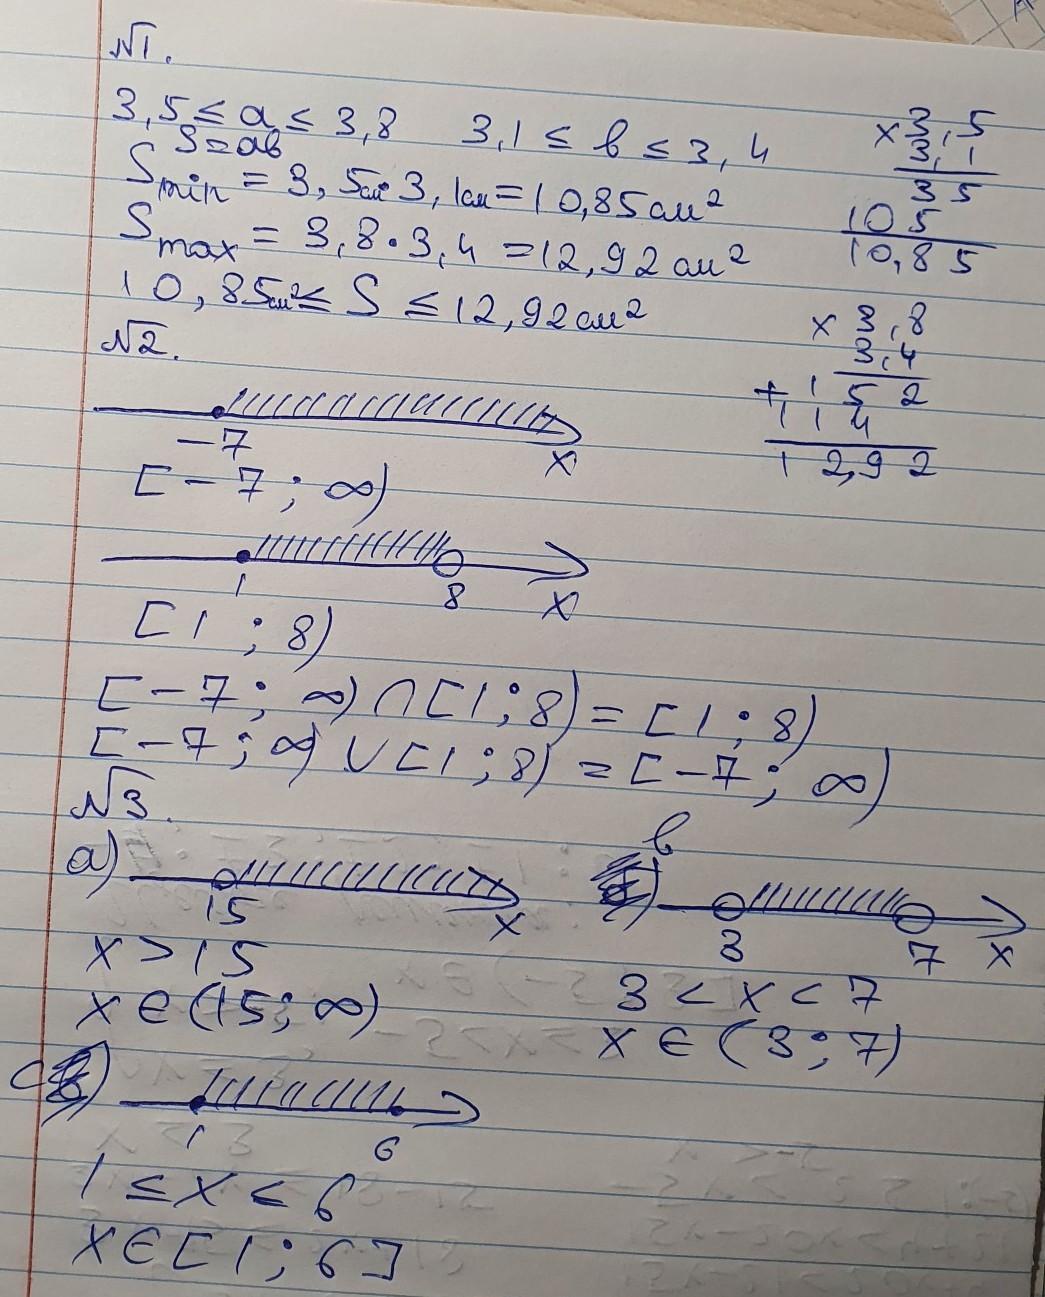 №1.
3,5 ≤ a ≤ 3,8   3,1 ≤ b ≤ 3,4
S=ab
Smin = 3,5см·3,1см=10,85см²
Smax = 3,8·3,4=12,92см²
10,85см² ≤ S ≤ 12,92см²
× 3,5
3,1
35
105
10,85
× 3,8
3,4
+ 152
114
12,92
№2.
-7 x
[-7; ∞)
1 8 x
[1; 8)
[-7; ∞) ∩ [1; 8) = [1; 8)
[-7; ∞) ∪ [1; 8) = [-7; ∞)
№3.
a)
15 x
x > 15
x ∈ (15; ∞)
b)
3 7 x
3 < x < 7
x ∈ (3; 7)
c)
1 6
1 ≤ x ≤ 6
x ∈ [1; 6]